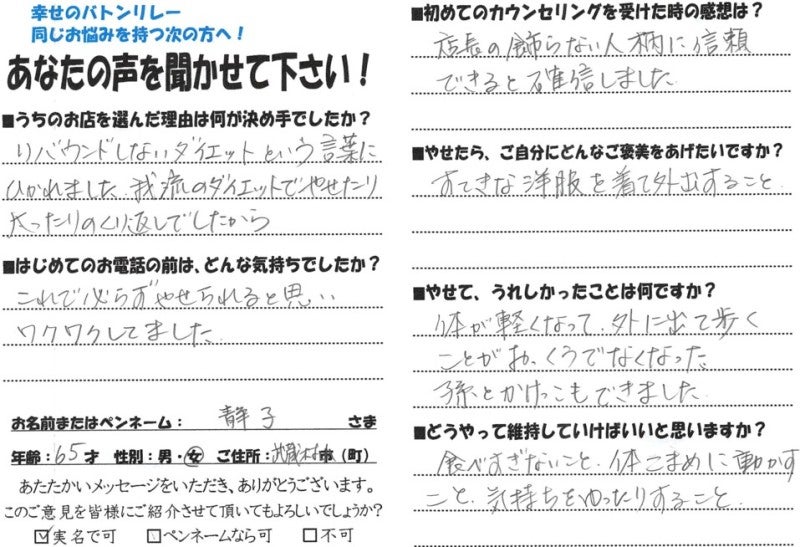 幸せのバトンリレー
同じお悩みを持つ次の方へ！
あなたの声を聞かせて下さい！
■うちのお店を選んだ理由は何が決め手でしたか？
リバウンドしないダイエットという言葉に
ひかれました 我流のダイエットでやせたり
太ったりのくり返しでしたから
■はじめてのお電話の前は、どんな気持ちでしたか？
これで必らずやせられると思い
ワクワクしてました
お名前またはペンネーム： 静子 さま
年齢：65才 性別：男・女 ご住所：武蔵村山市（町）
あたたかいメッセージをいただき、ありがとうございます。
このご意見を皆様にご紹介させて頂いてもよろしいでしょうか？
☑実名で可 □ペンネームなら可 □不可
■初めてのカウンセリングを受けた時の感想は？
店長の飾らない人柄に信頼
できると確信しました
■やせたら、ご自分にどんなご褒美をあげたいですか？
すてきな洋服を着て外出すること
■やせて、うれしかったことは何ですか？
体が軽くなって、外に出て歩く
ことがおっくうでなくなった
孫とかけっこもできました
■どうやって維持していけばいいと思いますか？
食べすぎないこと、体こまめに動かす
こと、気持ちをゆったりすること